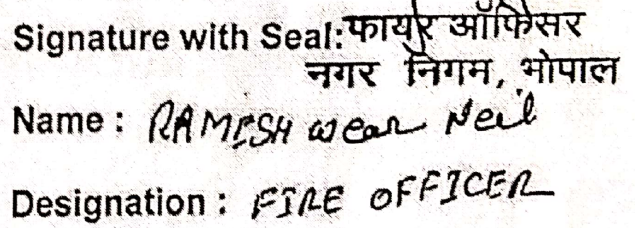 Signature with Seal: फायर ऑफिसर
नगर निगम, भोपाल
Name : RAMESH wear Neil
Designation : FIRE OFFICER